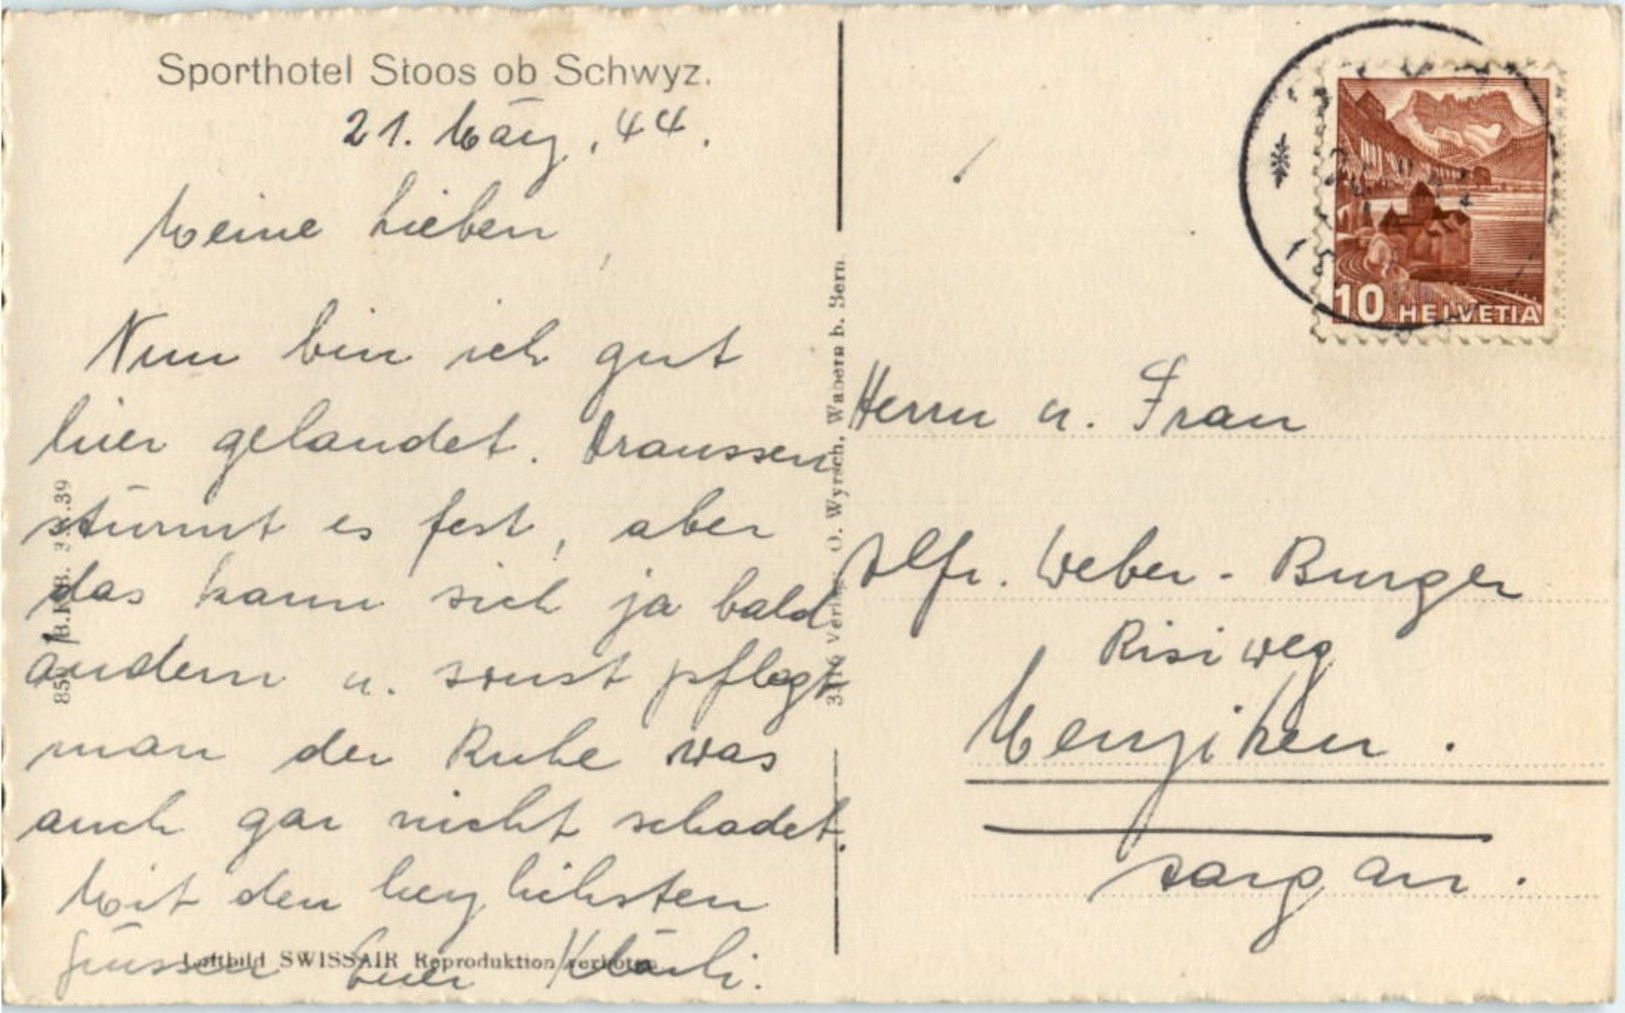 Sporthotel Stoos ob Schwyz.
21. März. 44.
Meine Lieben,
Nun bin ich gut
hier gelandet. Draussen
stürmt es fest, aber
das kann sich ja bald
ändern u. sonst pflegt
man der Ruhe was
auch gar nicht schadet.
Mit den herzlichsten
Grüssen Euer Klärli.
Luftbild SWISSAIR Reproduktion verboten
O. Wyrsch, Wabern b. Bern
10 HELVETIA
Herrn u. Frau
Alfr. Weber-Burger
Risiweg
Menziken.
Aargau.